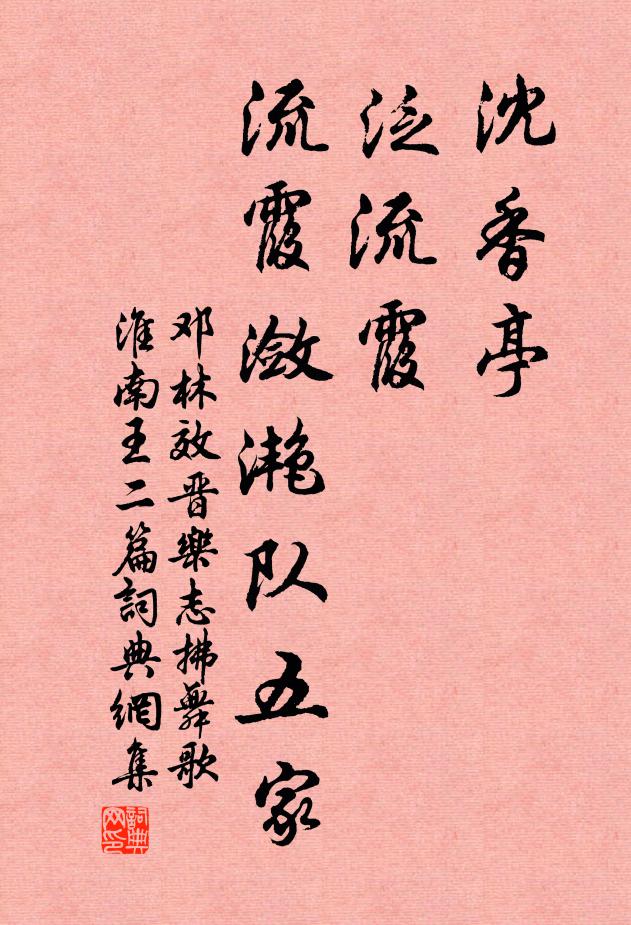 沈香亭
泛流霞
流霞潋滟队五家
邓林效晋樂志拂舞歌
淮南王二篇詞典網集
詞典网印